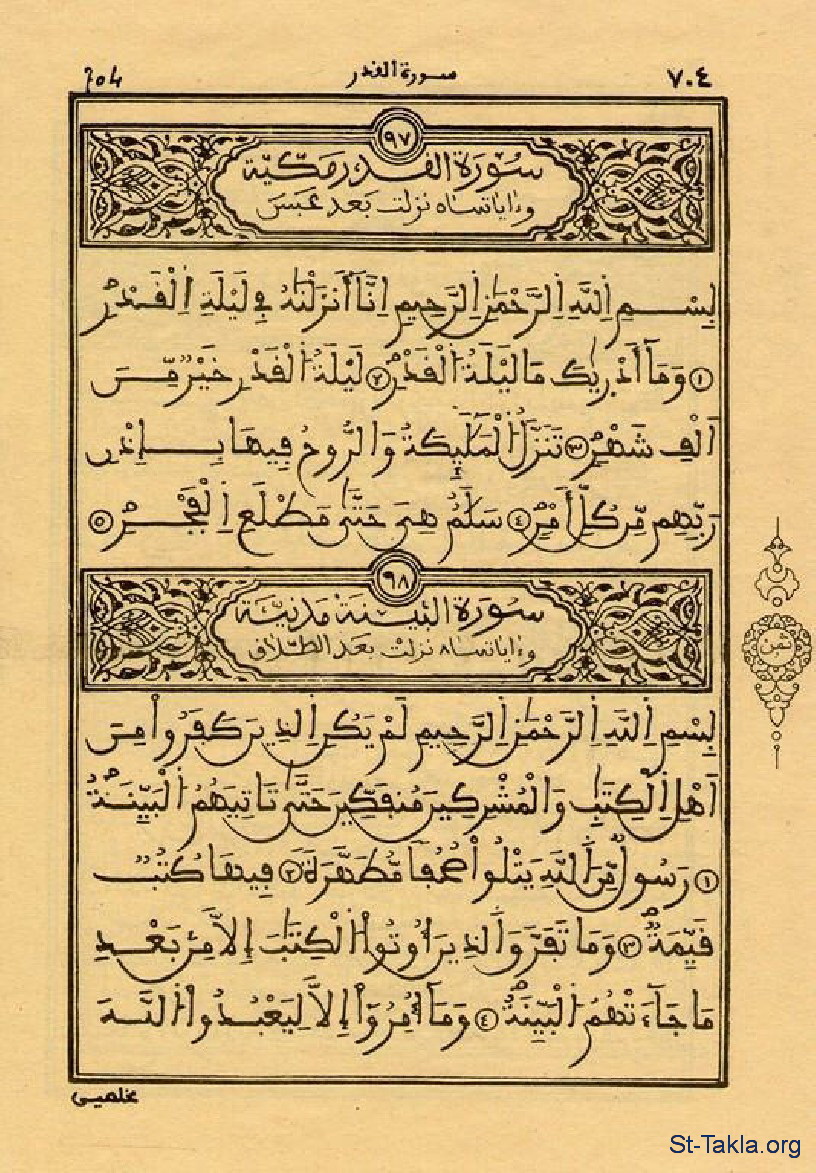 ٧٠٤ سورة القدر
٩٧
سُورَةُ الْقَدْرِ مَكِّيَّة
وءاياتها ٥ نزلت بَعْدَ عَبَسَ
بِسْمِ اِ۬للَّهِ اِ۬لرَّحْمَٰنِ اِ۬لرَّحِيمِ إِنَّآ أَنزَلْنَٰهُ فِے لَيْلَةِ اِ۬لْقَدْرِ
١ وَمَآ أَدْر۪يٰكَ مَا لَيْلَةُ اُ۬لْقَدْرِ ٢ لَيْلَةُ اُ۬لْقَدْرِ خَيْرٌ مِّنَ
اَلْفِ شَهْرٍ ٣ تَنَزَّلُ اُ۬لْمَلَٰٓئِكَةُ وَالرُّوحُ فِيهَا بِإِذْنِ
رَبِّهِم مِّن كُلِّ أَمْرٍ ٤ سَلَٰمٌ هِيَ حَتَّىٰ مَطْلَعِ اِ۬لْفَجْرِ ٥
٩٨
سُورَةُ الْبَيِّنَةِ مَدَنِيَّة
وءاياتها ٨ نزلتْ بعد الطَّلَاق
بِسْمِ اِ۬للَّهِ اِ۬لرَّحْمَٰنِ اِ۬لرَّحِيمِ لَمْ يَكُنِ اِ۬لذِينَ كَفَرُواْ مِنَ
اَهْلِ اِ۬لْكِتَٰبِ وَالْمُشْرِكِينَ مُنفَكِّينَ حَتَّىٰ تَاتِيَهُمُ اُ۬لْبَيِّنَةُ
١ رَسُولٌ مِّنَ اَ۬للَّهِ يَتْلُواْ صُحُفاً مُّطَهَّرَةً ٢ فِيهَا كُتُبٌ
قَيِّمَةٌ ٣ وَمَا تَفَرَّقَ اَ۬لذِينَ أُوتُواْ اُ۬لْكِتَٰبَ إِلَّا مِنۢ بَعْدِ
مَا جَآءَتْهُمُ اُ۬لْبَيِّنَةُ ٤ وَمَآ أُمِرُوٓاْ إِلَّا لِيَعْبُدُواْ اُ۬للَّهَ
ثمن
مخلصين
St-Takla.org